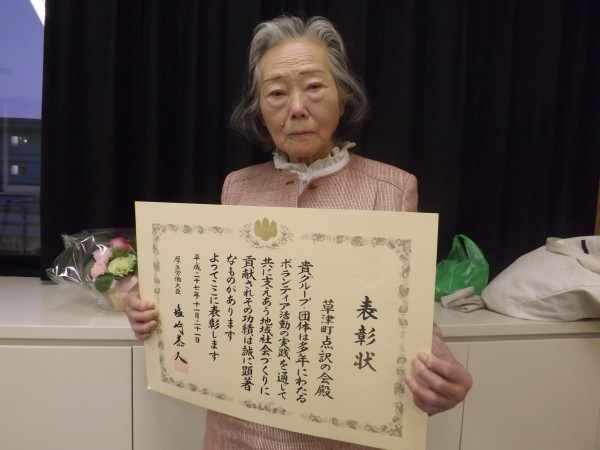 表彰状
草津町点訳の会殿
貴グループ・団体は多年にわたる
ボランティア活動の実践を通して
共に支えあう地域社会づくりに
貢献されその功績は誠に顕著
なものがあります
よってここに表彰します
平成二十七年十一月二十一日
厚生労働大臣
塩崎恭久